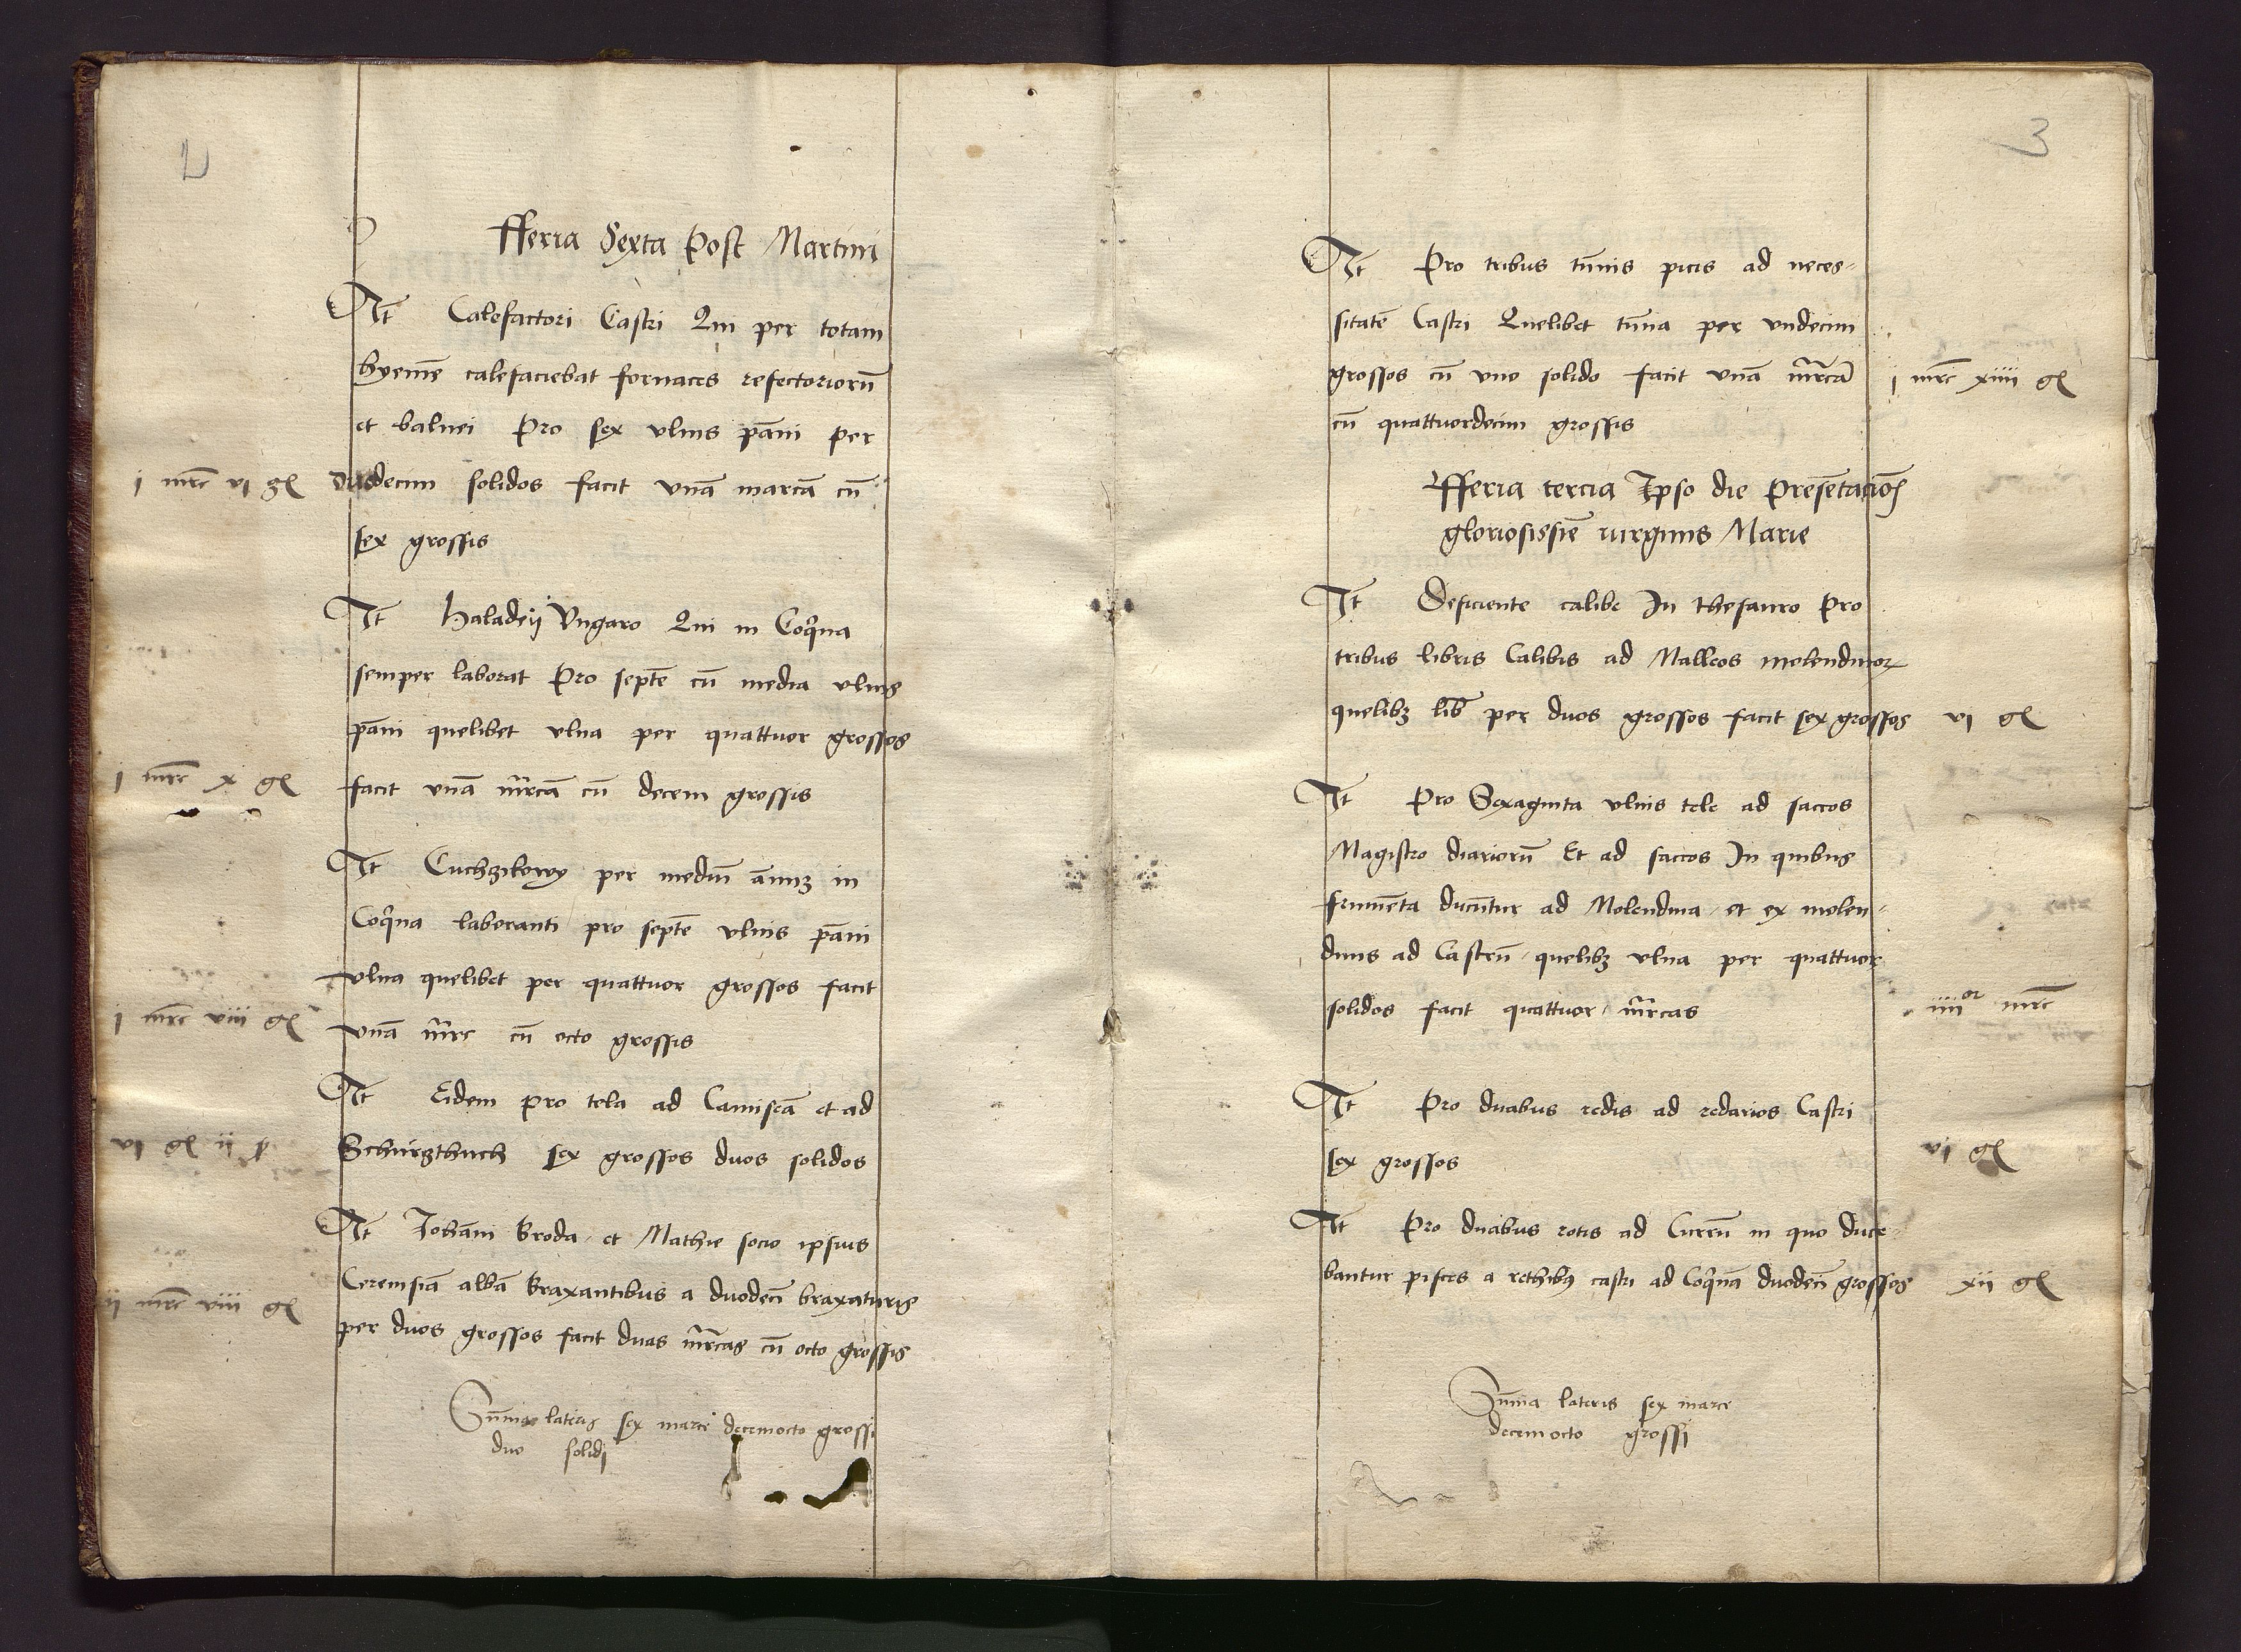 2
fferia Sexta Post Martini
It Calefactori Castri Qui per totam
hyemē calefaciebat fornaces refectoriorū
et balnei Pro sex ulnis pāni per
duodecim solidos facit unā marcā cū
sex grossis
i mrc vi gl
It Haladeij Ungaro Qui in Coqna
semper laborat Pro septē cū media ulnis
pāni quelibet ulna per quattuor grossos
facit unā mrcā cū decem grossis
i mrc x gl
It Cuchzikowy per mediū annuʒ in
Coqna laboranti pro septē ulnis pāni
ulna quelibet per quattuor grossos facit
unā mrc cū octo grossis
i mrc viii gl
It Eidem pro tela ad Camiseā et ad
Schurzthuch sex grossos duos solidos
vi gl ii ß
It Johāni Broda et Mathie socio ipsius
Ceremsiā albā braxantibus a duodecī braxaturis
per duos grossos facit duas mrcas cū octo grossis
ii mrc viii gl
Sūma lateris sex marce decemocto grossi
duo solidi
3
It Pro tribus tūnis picis ad neces-
sitatē Castri Quelibet tūna per undecim
grossos cū uno solido facit unā mrcā
cū quattuordecim grossis
i mrc xiiii gl
fferia tercia Ipso die Presētacioīs
gloriosissīe virginis Marie
It Deficiente calibe In thesauro Pro
tribus libris Calibis ad Malleos molendinoꝝ
quelibʒ lib per duos grossos facit sex grossos
vi gl
It Pro Sexaginta ulnis tele ad saccos
Magistro diariorū Et ad saccos In quibus
frumēta ducūntur ad Molendina et ex molen-
dinis ad Castrū quelibʒ ulna per quattuor
solidos facit quattuor mrcas
iiiior mrc
It Pro duabus redis ad redarios Castri
sex grossos
vi gl
It Pro duabus rotis ad Currū in quo duce-
bantur pisces a rethibꝫ castri ad Coqnā duodecī grossos
xii gl
Sūma lateris sex marce
decemocto grossi